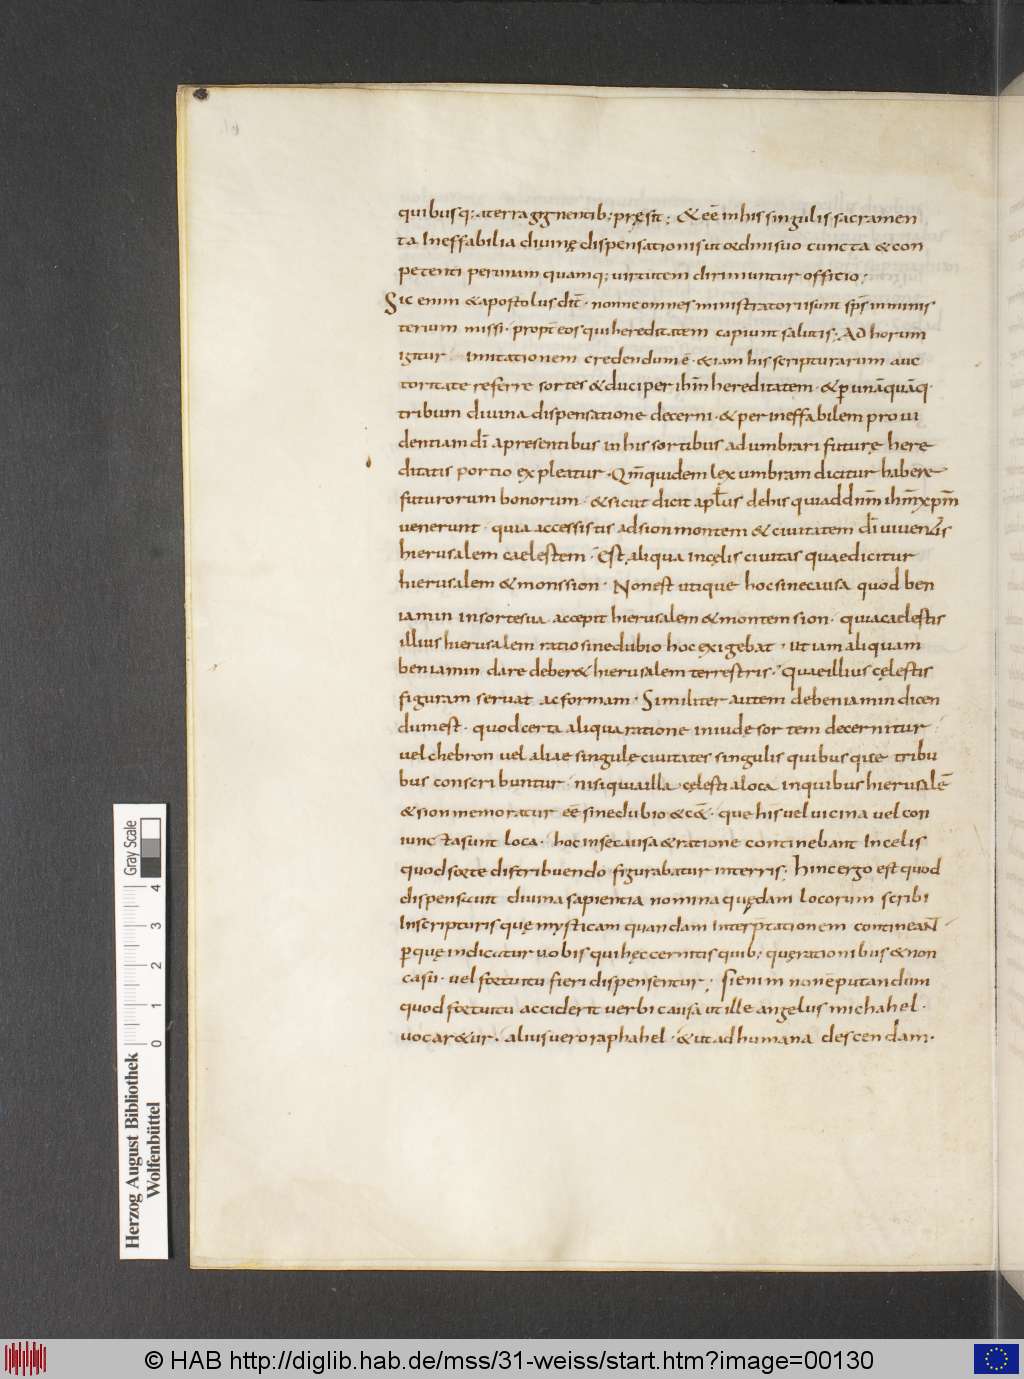 quibusq; aterragignentib; pręsit; & eē inhis singulis sacramen
ta Ineffabilia diuinę dispensationis ut ordini suo cuncta & con
petenti per unam quamq; uirtutem dirimuntur officio;
Sic enim & apostolus dic̄t · nonne omnes ministratorii sunt sp̄s inminis
terium missi · propt̄ eos qui hereditatem capiunt salutis; Ad horum
igitur imitationem credendum ē · & iam his scripturarum auc
toritate referre sortes & duci per ih̄m hereditatem · & ꝑ unāquāq·
tribum diuina dispensatione decerni · & per ineffabilem proui
dentiam dī apresentibus in his sortibus adumbrari futurę here
ditatis portio expleatur · Qm̄ quidem lex umbram dicitur habere
futurorum bonorum · & sicut dicit apl̄us dehis quiad dnm̄ ih̄m xpm̄
uenerunt · quia accessistis adsion montem & ciuitatem dī uiuentis
hierusalem caelestem · Est aliqua incęlis ciuitas quaedicitur
hierusalem & monssion · Nonest utique hoc sinecausa quod ben
iamin insortesua accepit hierusalem & montem sion · quia caelestis
illius hierusalem ratio sinedubio hoc exigebat · ut iam aliquam
beniamin dare deber& hierusalem terrestris · Quae illius cęlestis
figuram seruat ac formam · Similiter autem debeniamin dicen
dumest · quod certa aliqua ratione iniudę sortem decernitur
uel chebron uel aliae singulę ciuitates singulis quibusque tribu
bus conscribuntur · nisi quia illa cęlestia loca inquibus hierusalē
& sion memoratur eē sinedubio & c&̄ · que his uel uicina uel con
iunctasunt loca · hoc inse causa & ratione continebant Incelis
quod sorte distribuendo figurabatur interris; hinc ergo est quod
dispensauit diuina sapientia nomina quędam locorum scribi
Inscripturis quę mysticam quandam interp̄tationem contineant
ꝑ quę indicatur uobis qui hęc cernitis quib; quęrationibus & non
casu · uel fortuitu fieri dispensentur; Sienim non ē putandum
quod fortuitu acciderit uerbi causa ut ille angelus michahel ·
uocar&ur · alius uero raphahel · & ut ad humana descendam ·
Herzog August Bibliothek
Wolfenbüttel
0 1 2 3 4
Gray Scale
© HAB http://diglib.hab.de/mss/31-weiss/start.htm?image=00130